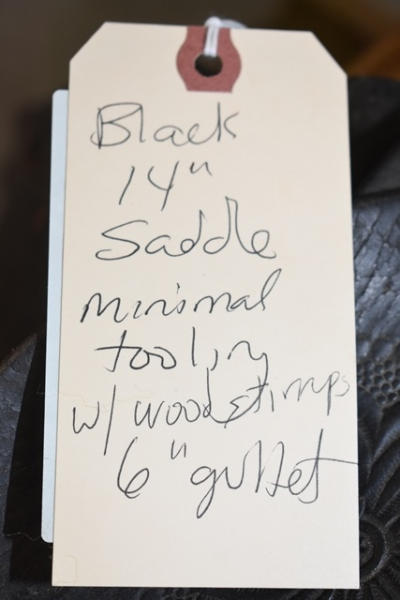 Black
14"
Saddle
minimal
tooling
w/ wood stirrups
6" gullet